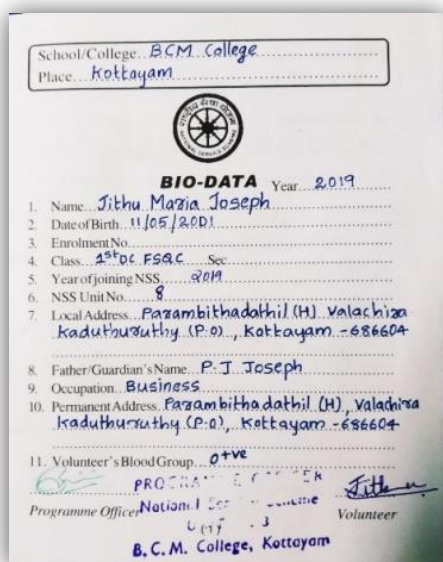 School/College BCM College
Place Kottayam
NATIONAL SERVICE SCHEME
BIO-DATA Year 2019
1. Name Jithu Maria Joseph
2. Date of Birth 11/05/2001
3. Enrolment No.
4. Class 1st DC FSQC Sec
5. Year of joining NSS 2019
6. NSS Unit No. 8
7. Local Address Parambithadathil (H) Valachira
Kaduthuruthy (P.O), Kottayam -686604
8. Father/Guardian's Name P.J Joseph
9. Occupation Business
10. Permanent Address Parambithadathil (H), Valachira
Kaduthuruthy (P.O), Kottayam -686604
11. Volunteer's Blood Group O+ve
Jithu
Programme Officer National Volunteer
B.C.M. College, Kottayam